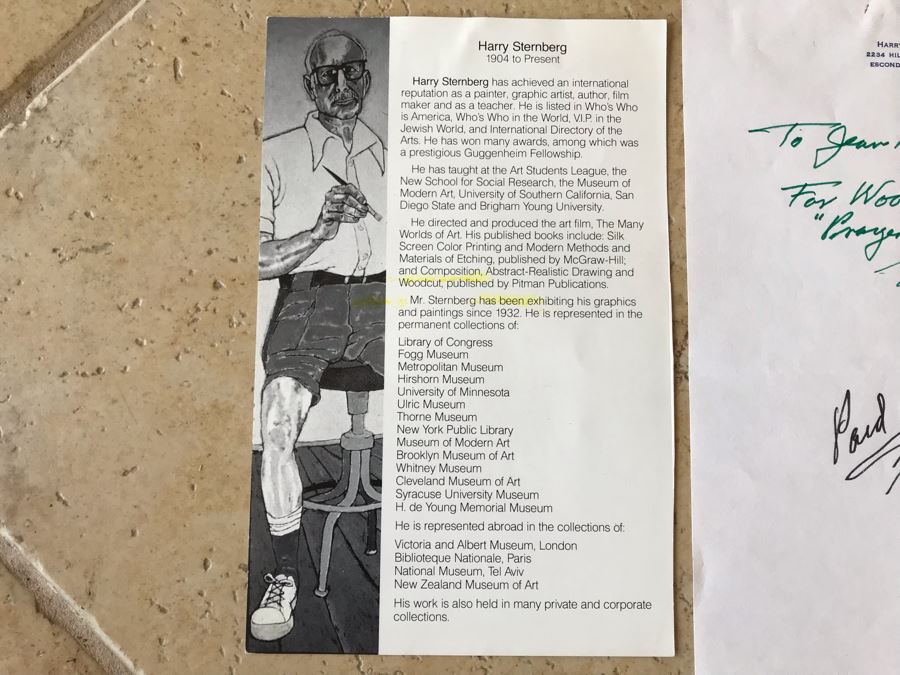 Harry Sternberg
1904 to Present
Harry Sternberg has achieved an international
reputation as a painter, graphic artist, author, film
maker and as a teacher. He is listed in Who's Who
is America, Who's Who in the World, V.I.P. in the
Jewish World, and International Directory of the
Arts. He has won many awards, among which was
a prestigious Guggenheim Fellowship.
He has taught at the Art Students League, the
New School for Social Research, the Museum of
Modern Art, University of Southern California, San
Diego State and Brigham Young University.
He directed and produced the art film, The Many
Worlds of Art. His published books include: Silk
Screen Color Printing and Modern Methods and
Materials of Etching, published by McGraw-Hill;
and Composition, Abstract-Realistic Drawing and
Woodcut, published by Pitman Publications.
Mr. Sternberg has been exhibiting his graphics
and paintings since 1932. He is represented in the
permanent collections of:
Library of Congress
Fogg Museum
Metropolitan Museum
Hirshorn Museum
University of Minnesota
Ulric Museum
Thorne Museum
New York Public Library
Museum of Modern Art
Brooklyn Museum of Art
Whitney Museum
Cleveland Museum of Art
Syracuse University Museum
H. de Young Memorial Museum
He is represented abroad in the collections of:
Victoria and Albert Museum, London
Biblioteque Nationale, Paris
National Museum, Tel Aviv
New Zealand Museum of Art
His work is also held in many private and corporate
collections.
HARRY
2234 HIL
ESCOND
To Jean
For Woo
"Prayer
Paid